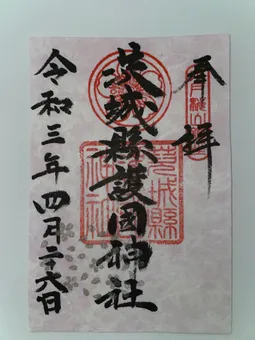 奉拝
茨城縣護国神社
令和三年四月二十六日
茨城縣
神社